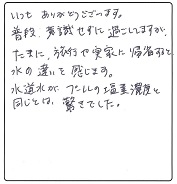 いつも ありがとうございます。
普段、意識せずに過ごしてますが、
たまに、旅行や実家に帰省すると
水の違いを感じます。
水道水が プールの塩素濃度と
同じとは、驚きでした。